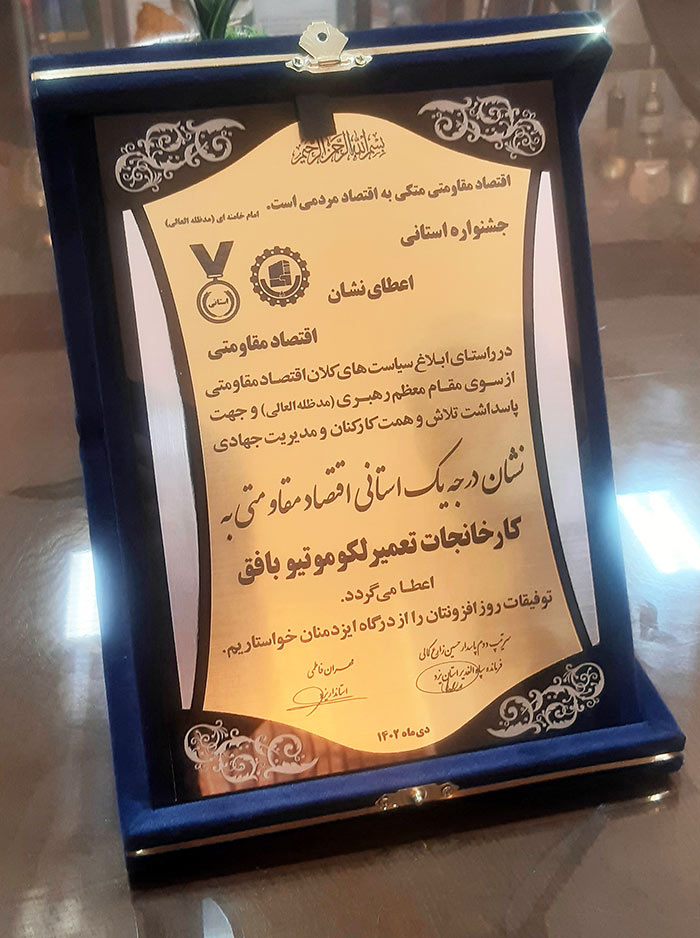 بسم الله الرحمن الرحیم
اقتصاد مقاومتی متکی به اقتصاد مردمی است.
امام خامنه ای (مدظله العالی)
جشنواره استانی
استانی
اعطای نشان
اقتصاد مقاومتی
در راستای ابلاغ سیاست های کلان اقتصاد مقاومتی
از سوی مقام معظم رهبری (مدظله العالی) و جهت
پاسداشت تلاش و همت کارکنان و مدیریت جهادی
نشان درجه یک استانی اقتصاد مقاومتی به
کارخانجات تعمیر لکوموتیو بافق
اعطا می‌گردد.
توفیقات روز افزونتان را از درگاه ایزد منان خواستاریم.
سرتیپ دوم پاسدار حسین زارع کمالی
فرمانده سپاه الغدیر استان یزد
مهران فاطمی
استاندار یزد
دی ماه ۱۴۰۲